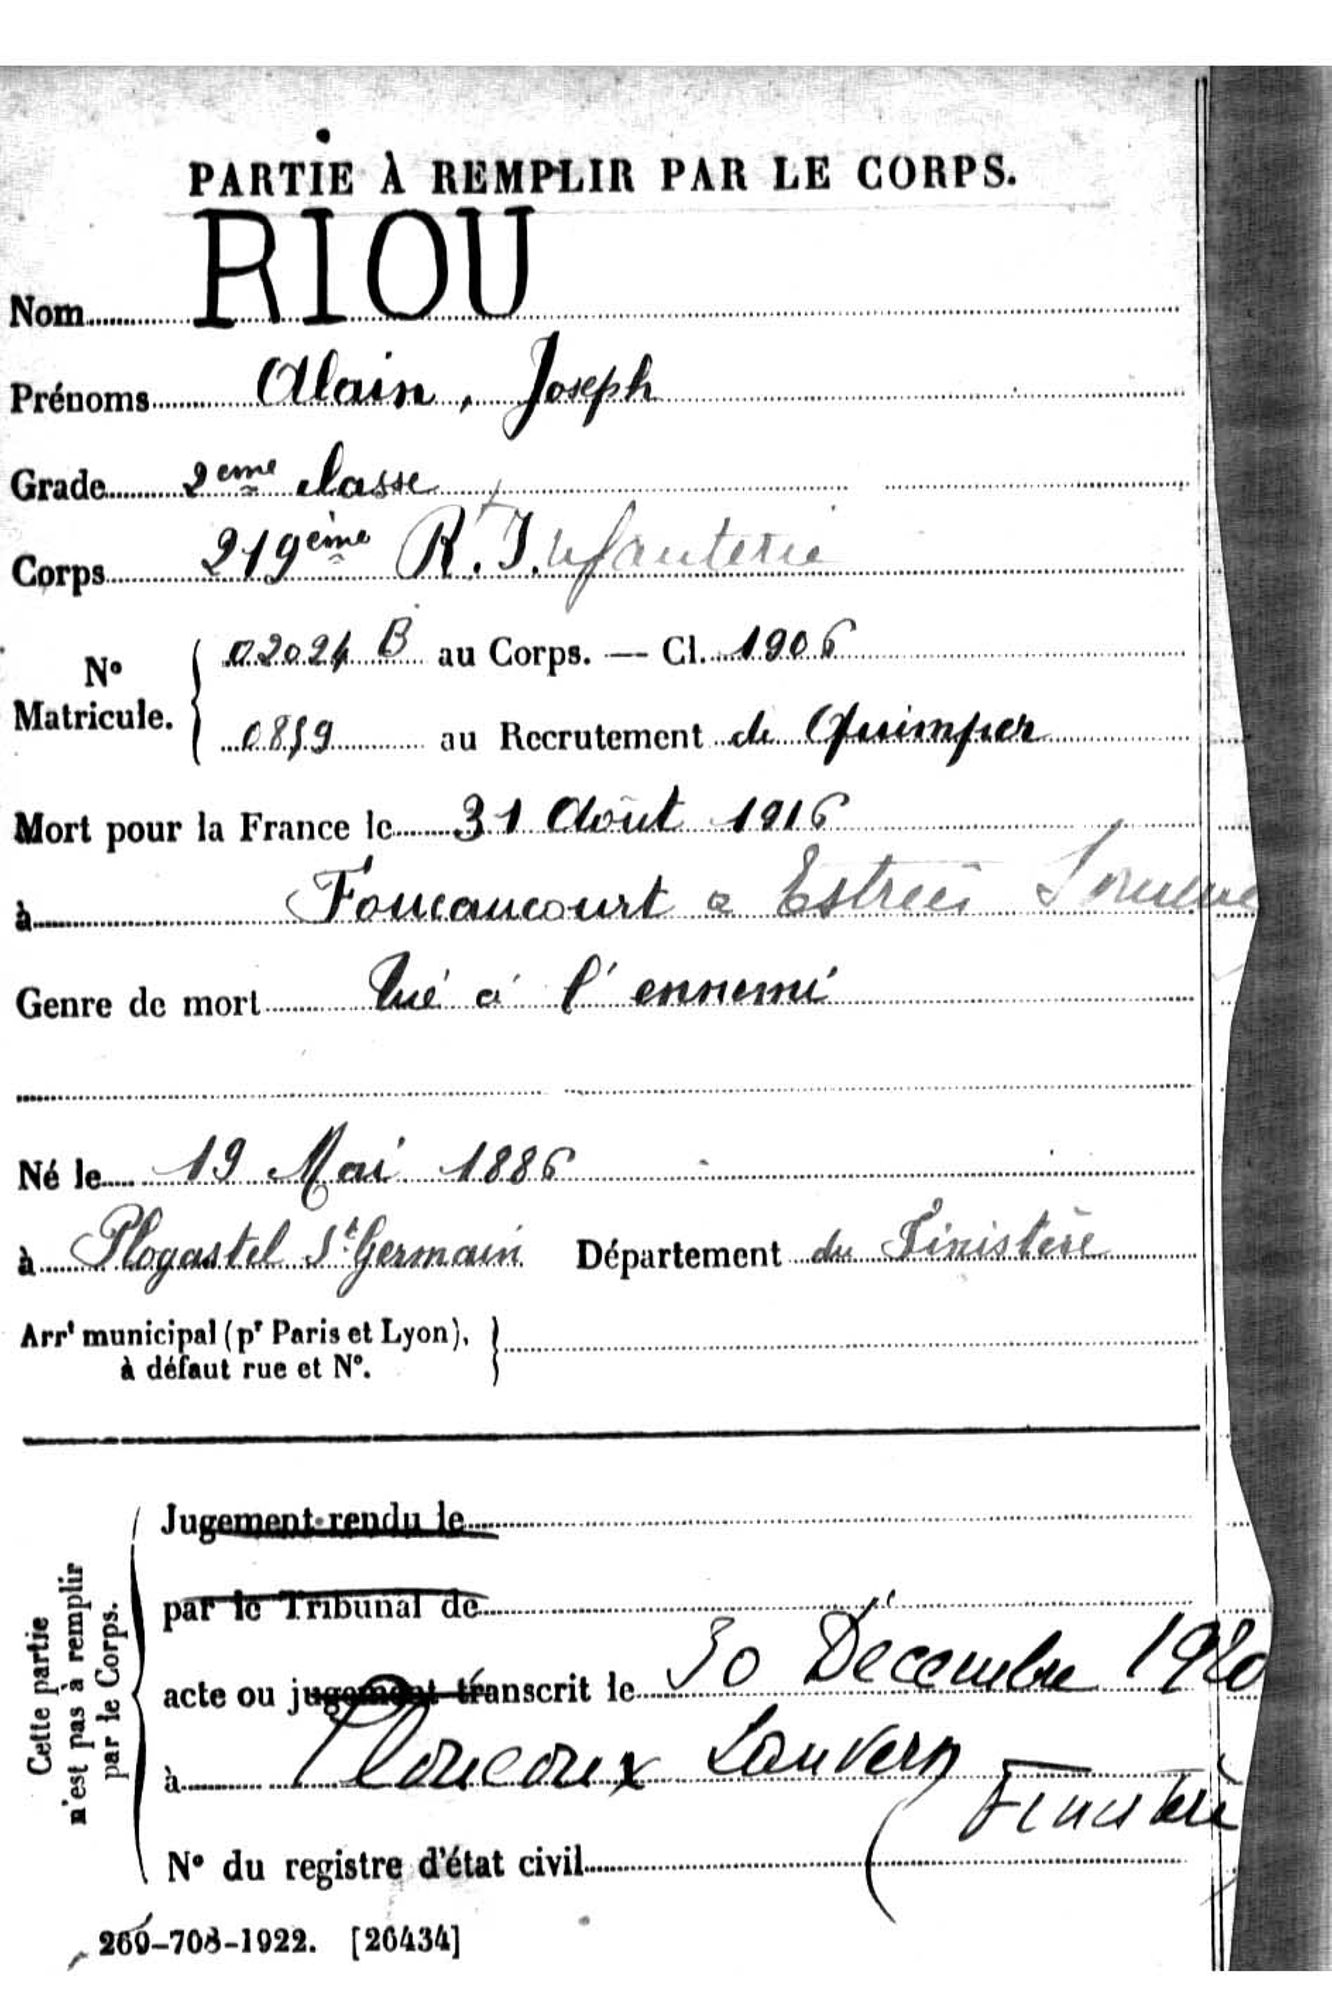 PARTIE À REMPLIR PAR LE CORPS.
Nom RIOU
Prénoms Alain, Joseph
Grade 2eme classe
Corps 219ème R. Infanterie
Nº Matricule. 02024 B au Corps. — Cl. 1906
0859 au Recrutement de Quimper
Mort pour la France le 31 Août 1916
à Foucaucourt a Estrées Somme
Genre de mort Tué à l'ennemi
Né le 19 Mai 1886
à Plogastel St Germain Département du Finistère
Arrt municipal (pr Paris et Lyon),
à défaut rue et Nº.
Cette partie
n'est pas à remplir
par le Corps.
Jugement rendu le
par le Tribunal de
acte ou jugement transcrit le 30 Décembre 1920
à Ploneour Lanvern
Finistère
Nº du registre d'état civil
269-708-1922. [26434]